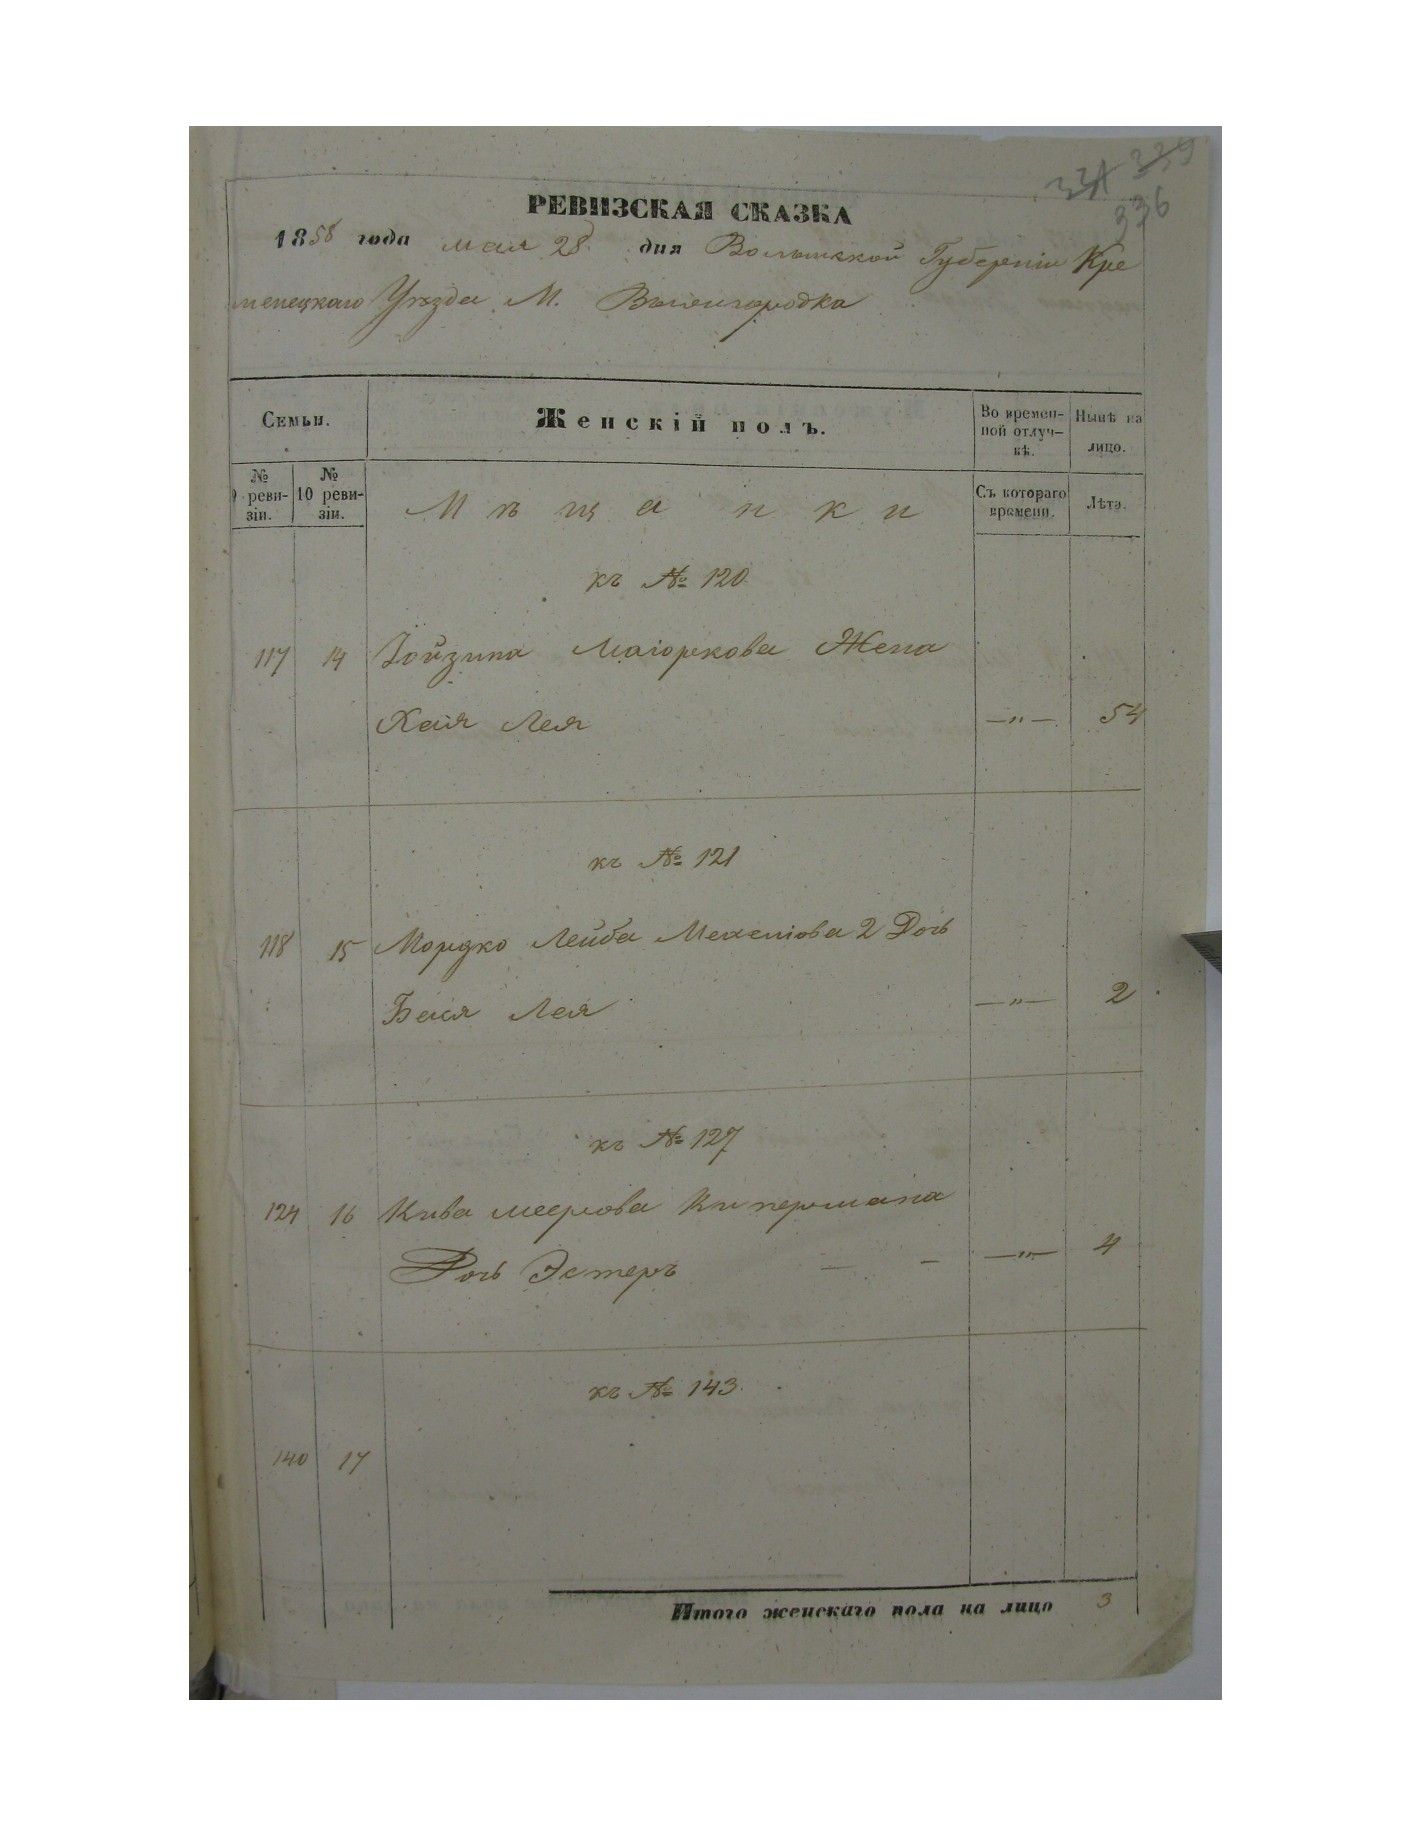 331 339
336
РЕВИЗСКАЯ СКАЗКА
1858 года мая 28 дня Волынской Губерніи Кре
менецкаго Уѣзда М. Вышгородка
Семьи.
Женскій полъ.
Во времен-
ной отлуч-
кѣ.
Нынѣ на
лицо.
№
9 реви-
зіи.
№
10 реви-
зіи.
Мѣщанки
Съ котораго
времени.
Лѣта.
къ № 120
117 14 Іойзипа Маіоркова Жена
Хая Лея —"— 54
къ № 121
118 15 Мордко Лейба 2 Дочь
Бася Лея —"— 2
къ № 127
124 16 Кива Меерова Кипермана
Дочь Эстеръ — — —"— 4
къ № 143.
140 17
Итого женскаго пола на лицо 3